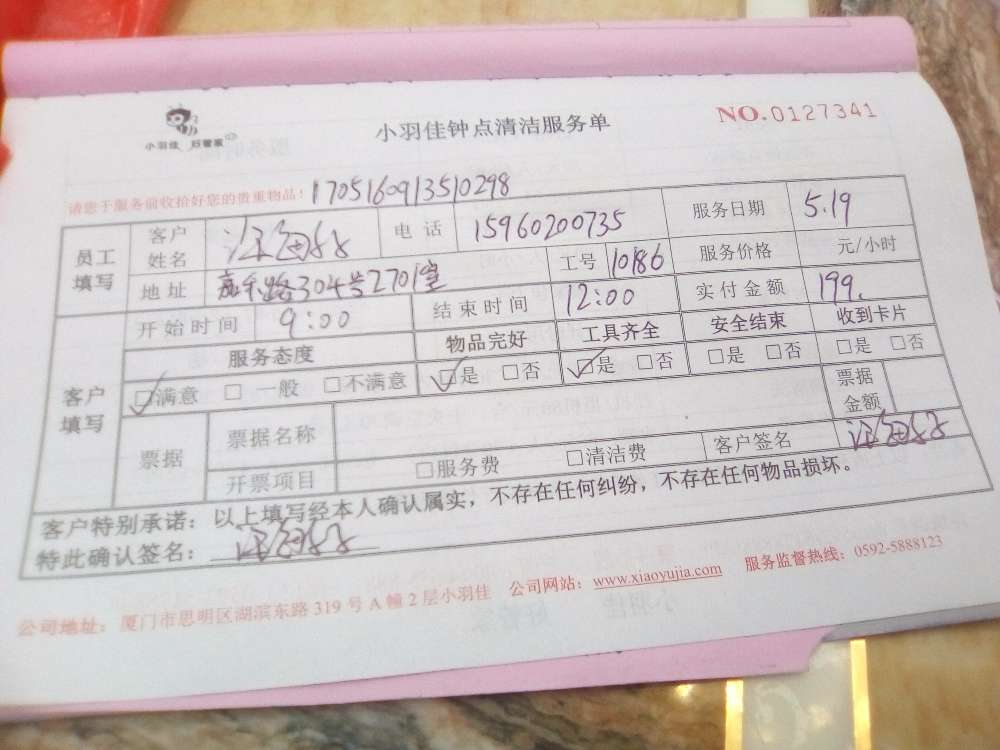 小羽佳 好管家
小羽佳钟点清洁服务单
NO.0127341
请您于服务前收拾好您的贵重物品！1705160913510298
员工填写 客户姓名 电话 15960200735 服务日期 5.19
地址 路304号2701室 工号 10186 服务价格 元/小时
客户填写 开始时间 9:00 结束时间 12:00 实付金额 199.
服务态度 物品完好 工具齐全 安全结束 收到卡片
☑满意 □一般 □不满意 ☑是 □否 ☑是 □否 □是 □否 □是 □否
票据 票据名称 票据金额
开票项目 □服务费 □清洁费 客户签名
客户特别承诺：以上填写经本人确认属实，不存在任何纠纷，不存在任何物品损坏。
特此确认签名：
公司地址：厦门市思明区湖滨东路319号A幢2层小羽佳 公司网站：www.xiaoyujia.com 服务监督热线：0592-5888123